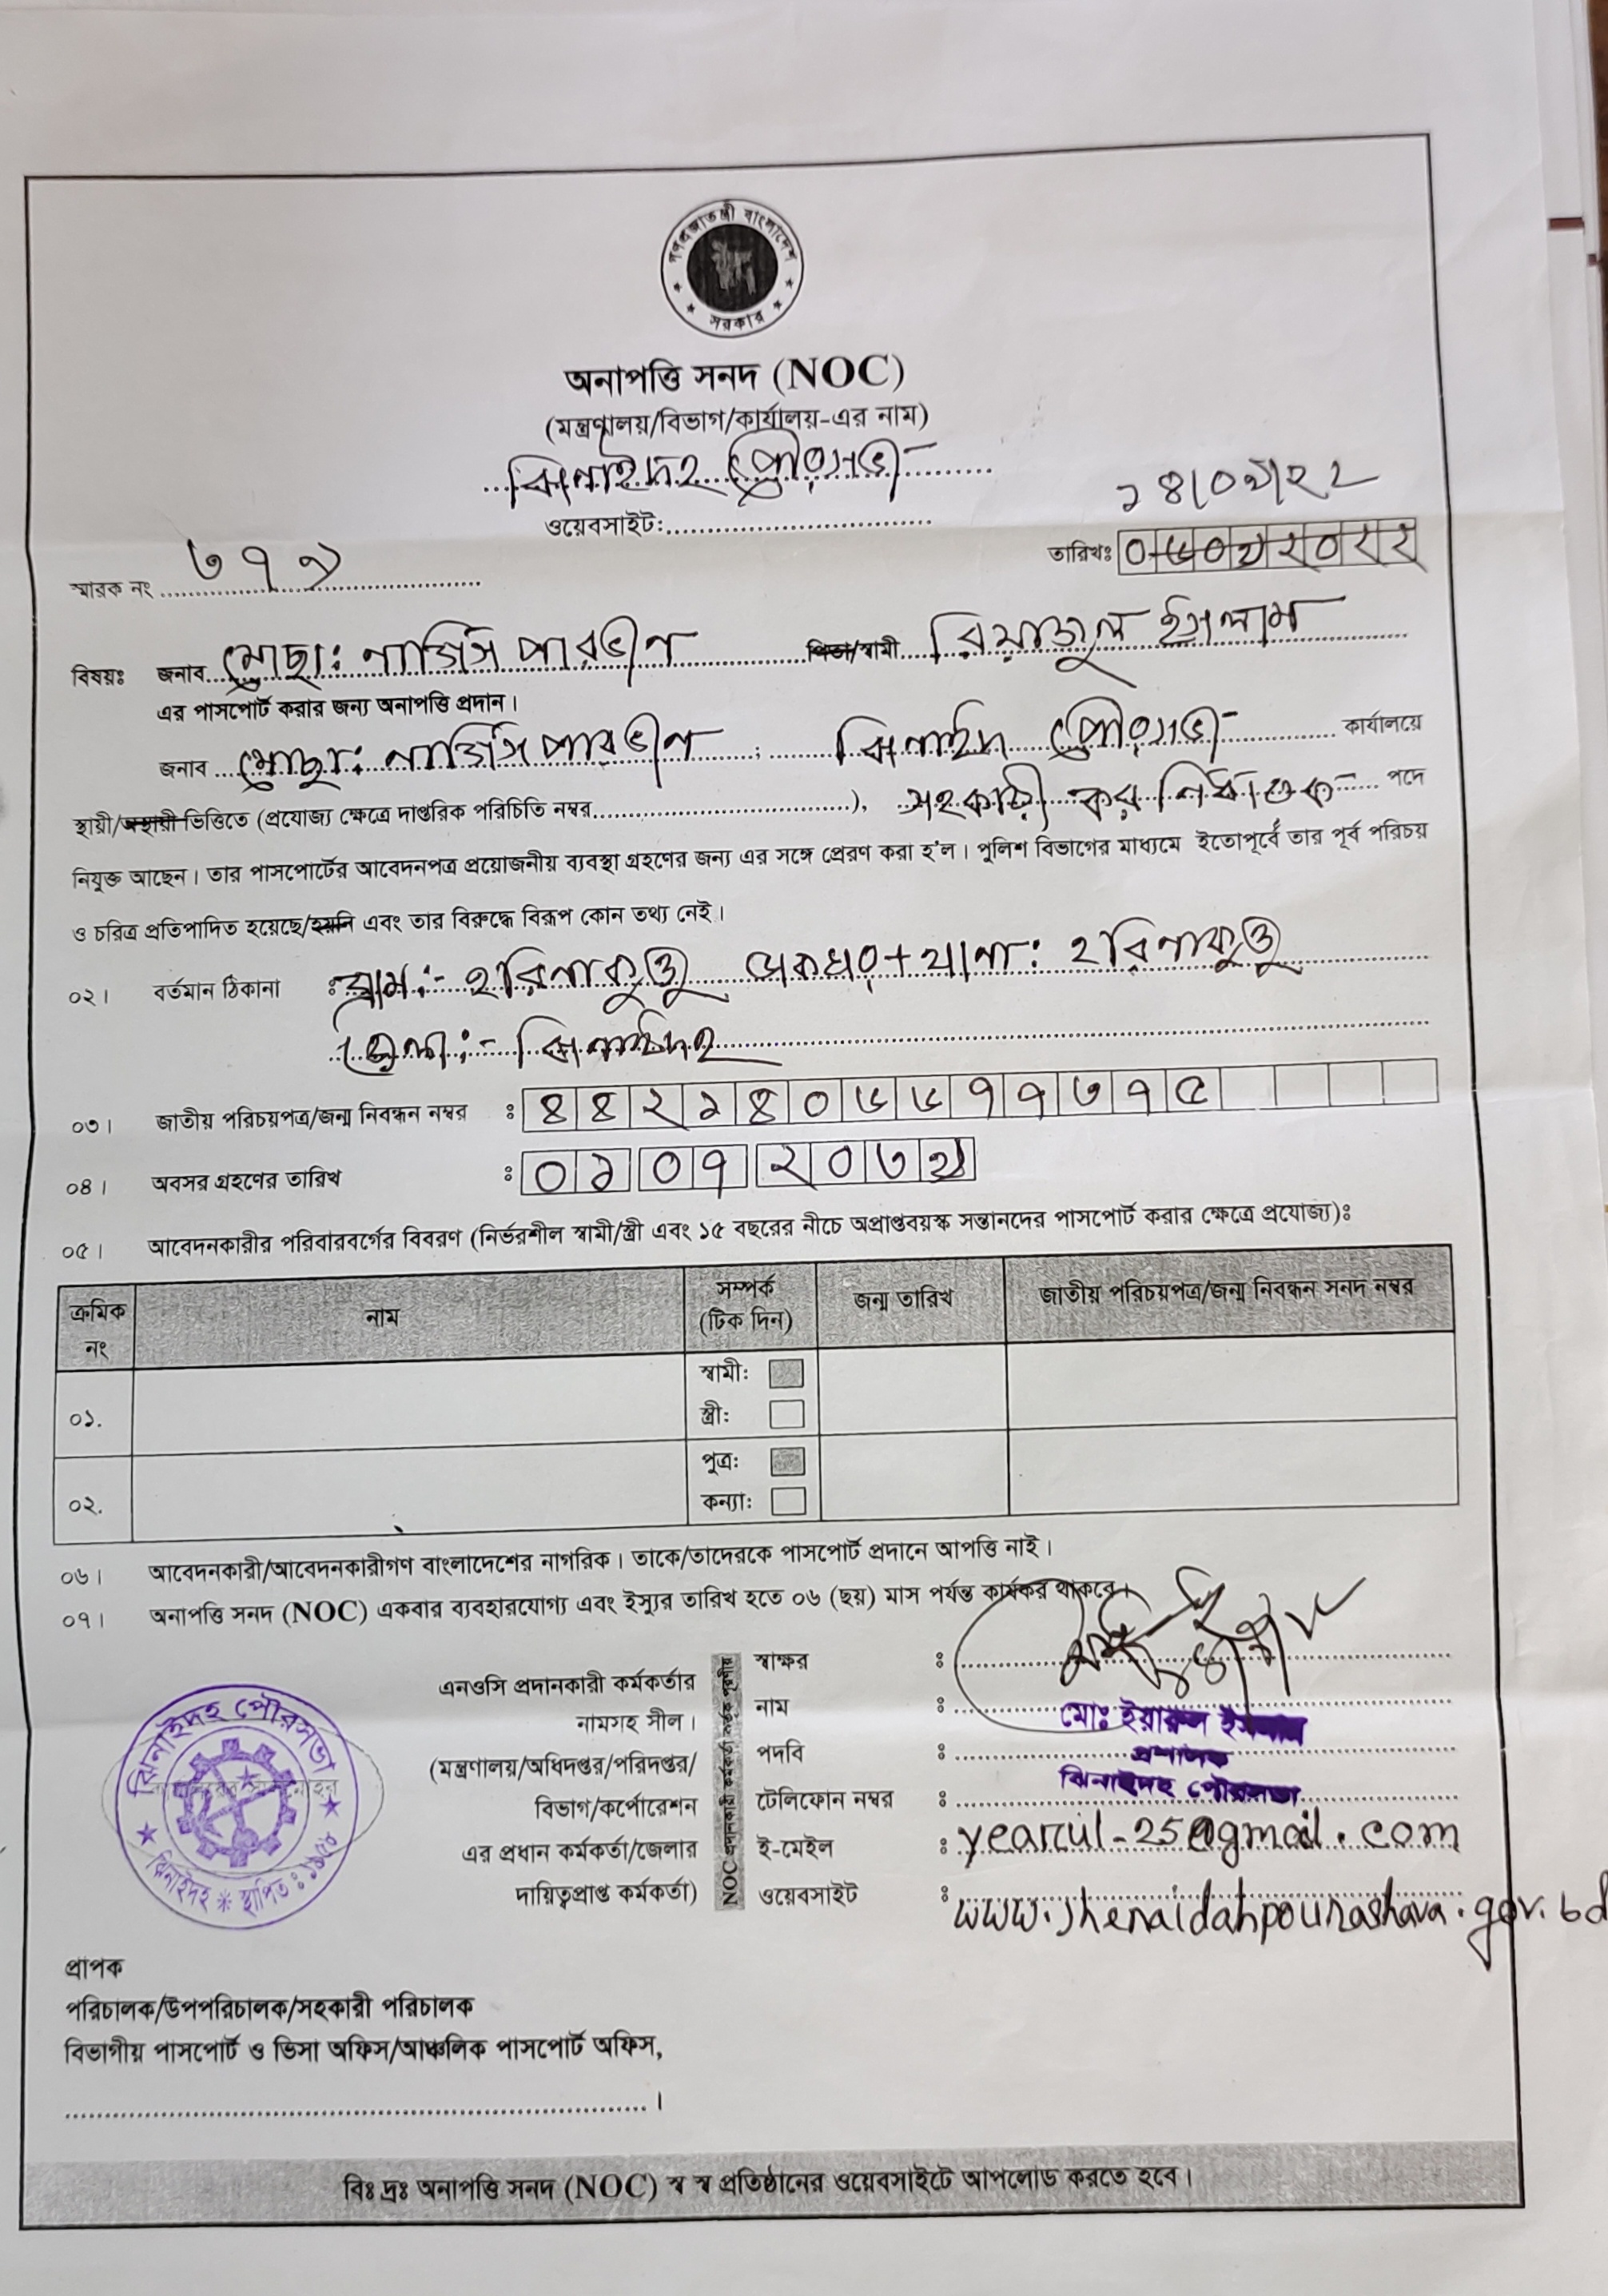 গণপ্রজাতন্ত্রী বাংলাদেশ
সরকার
অনাপত্তি সনদ (NOC)
(মন্ত্রণালয়/বিভাগ/কার্যালয়-এর নাম)
ঝিনাইদহ পৌরসভা
ওয়েবসাইট:
স্মারক নং ৩৭৯
তারিখঃ
বিষয়ঃ জনাব মোছা: নার্গিস পারভীন পিতা/স্বামী রিয়াজুল ইসলাম
এর পাসপোর্ট করার জন্য অনাপত্তি প্রদান।
জনাব মোছা: নার্গিস পারভীন ; ঝিনাইদহ পৌরসভা কার্যালয়ে
স্থায়ী/অস্থায়ী ভিত্তিতে (প্রযোজ্য ক্ষেত্রে দাপ্তরিক পরিচিতি নম্বর), সহকারী কর নির্ধারক পদে
নিযুক্ত আছেন। তার পাসপোর্টের আবেদনপত্র প্রয়োজনীয় ব্যবস্থা গ্রহণের জন্য এর সঙ্গে প্রেরণ করা হ'ল। পুলিশ বিভাগের মাধ্যমে ইতোপূর্বে তার পূর্ব পরিচয়
ও চরিত্র প্রতিপাদিত হয়েছে/হয়নি এবং তার বিরুদ্ধে বিরূপ কোন তথ্য নেই।
০২। বর্তমান ঠিকানা : গ্রাম:- হরিনাকুন্ডু ডাকঘর+থানা: হরিনাকুন্ডু
জেলা:- ঝিনাইদহ
০৩। জাতীয় পরিচয়পত্র/জন্ম নিবন্ধন নম্বর : ৪৪২১৪০৬৬৭৭৩৭৫
০৪। অবসর গ্রহণের তারিখ : ০১০৭২০৩
০৫। আবেদনকারীর পরিবারবর্গের বিবরণ (নির্ভরশীল স্বামী/স্ত্রী এবং ১৫ বছরের নীচে অপ্রাপ্তবয়স্ক সন্তানদের পাসপোর্ট করার ক্ষেত্রে প্রযোজ্য)ঃ
ক্রমিক নং নাম সম্পর্ক (টিক দিন) জন্ম তারিখ জাতীয় পরিচয়পত্র/জন্ম নিবন্ধন সনদ নম্বর
০১. স্বামী:
স্ত্রী:
০২. পুত্র:
কন্যা:
০৬। আবেদনকারী/আবেদনকারীগণ বাংলাদেশের নাগরিক। তাকে/তাদেরকে পাসপোর্ট প্রদানে আপত্তি নাই।
০৭। অনাপত্তি সনদ (NOC) একবার ব্যবহারযোগ্য এবং ইস্যুর তারিখ হতে ০৬ (ছয়) মাস পর্যন্ত কার্যকর থাকবে।
ঝিনাইদহ পৌরসভা
ঝিনাইদহ * স্থাপিত :
এনওসি প্রদানকারী কর্মকর্তার
নামগহ সীল।
(মন্ত্রণালয়/অধিদপ্তর/পরিদপ্তর/
বিভাগ/কর্পোরেশন
এর প্রধান কর্মকর্তা/জেলার
দায়িত্বপ্রাপ্ত কর্মকর্তা)
NOC প্রদানকারী কর্মকর্তা কর্তৃক পূরণীয়
স্বাক্ষর :
নাম : মোঃ ইয়ারুল ইসলাম
পদবি : প্রশাসক
ঝিনাইদহ পৌরসভা
টেলিফোন নম্বর :
ই-মেইল : yearul-25@gmail.com
ওয়েবসাইট : www.jhenaidahpourashava.gov.bd
প্রাপক
পরিচালক/উপপরিচালক/সহকারী পরিচালক
বিভাগীয় পাসপোর্ট ও ভিসা অফিস/আঞ্চলিক পাসপোর্ট অফিস,
।
বিঃ দ্রঃ অনাপত্তি সনদ (NOC) স্ব স্ব প্রতিষ্ঠানের ওয়েবসাইটে আপলোড করতে হবে।